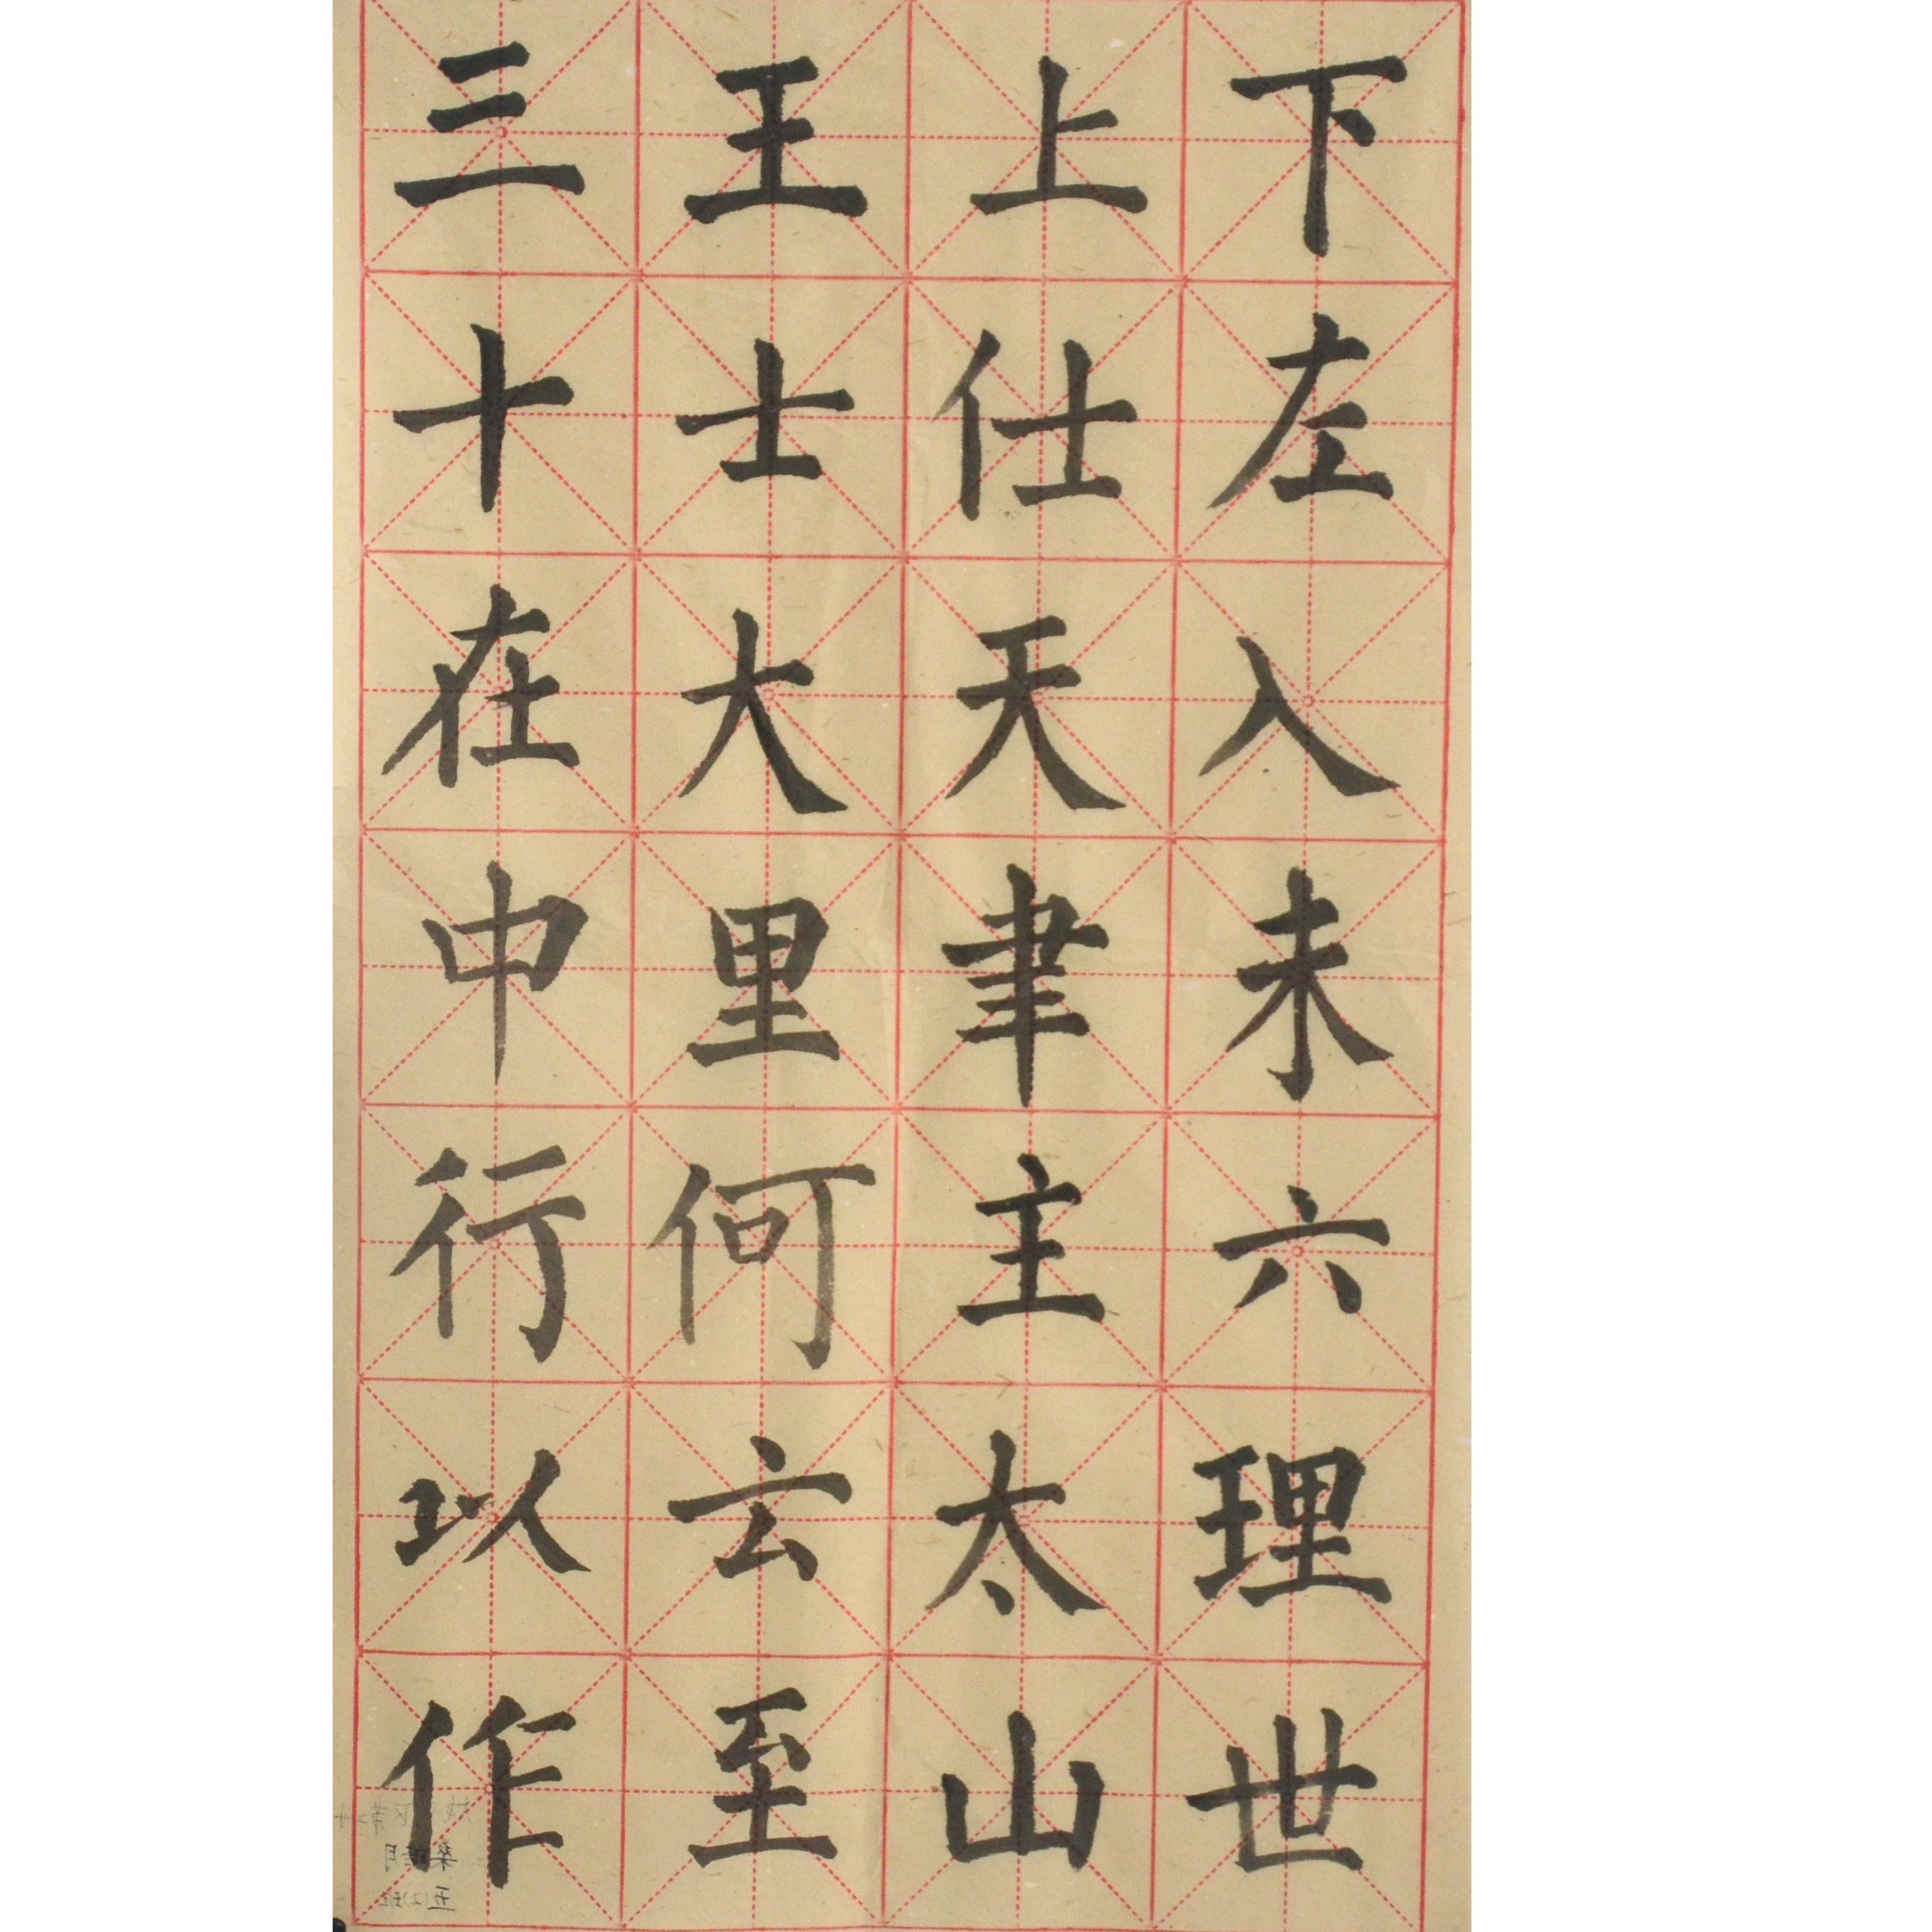 三王上下
十士仕左
在大天入
中里聿未
行何主六
以云太理
作至山世
五(2)班